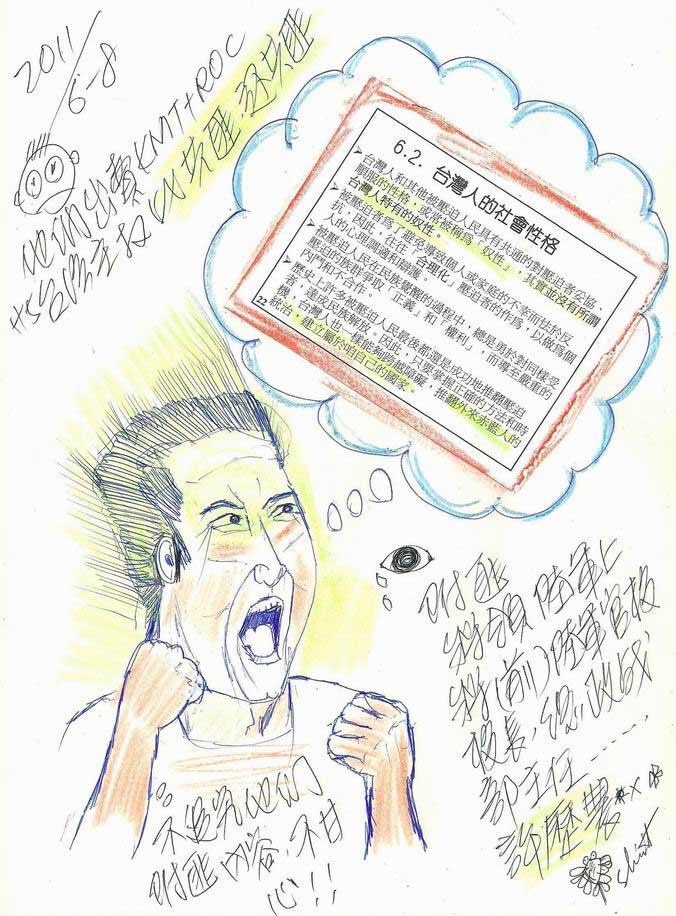 2011
6-8
他們出賣KMT+ROC
共匪,還共匪
6.2. 台灣人的社會性格
➢台灣人和其他被壓迫人民具有共通的對壓迫者妥協、
順服的性格,或常被稱為「奴性」,其實並沒有所謂
台灣人特有的奴性。
➢被壓迫者為了避免導致個人或家庭的不幸而怯於反
抗,因此,往往「合理化」壓迫者的作為,以做為個
人的心理調適和辯護。
➢被壓迫人民在民族覺醒的過程中,總是勇於對同樣受
壓迫的族群爭取「正義」和「權利」,而導至嚴重的
內鬥和不合作。
➢歷史上許多被壓迫人民最後都還是成功地推翻壓迫
者,達成民族解放。因此,只要掌握正確的方法和時
機,台灣人也一樣能夠跨越障礙,推翻外來赤藍人的
統治,建立屬於咱自己的國家。
122
附匪
陸軍上
(前)陸軍官校
校長,總政戰
部主任……,
許歷農
不追究他们
附匪內容,不甘
心!!